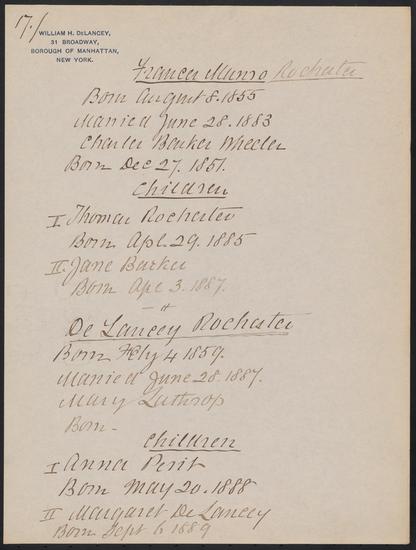 17./
WILLIAM H. DELANCEY,
31 BROADWAY,
BOROUGH OF MANHATTAN,
NEW YORK.
Frances Munro Rochester
Born August 8. 1855
Married June 28. 1883
Charles Barker Wheeler
Born Dec 27. 1851.
Children
I. Thomas Rochester
Born Apl. 29. 1885
II. Jane Barker
Born Apl 3. 1887.
De Lancey Rochester
Born Feby 4 1859.
Married June 28. 1887.
Mary Lathrop
Born -
Children
I Anna Perit
Born May 20. 1888
II Margaret De Lancey
Born Sept 6 1889